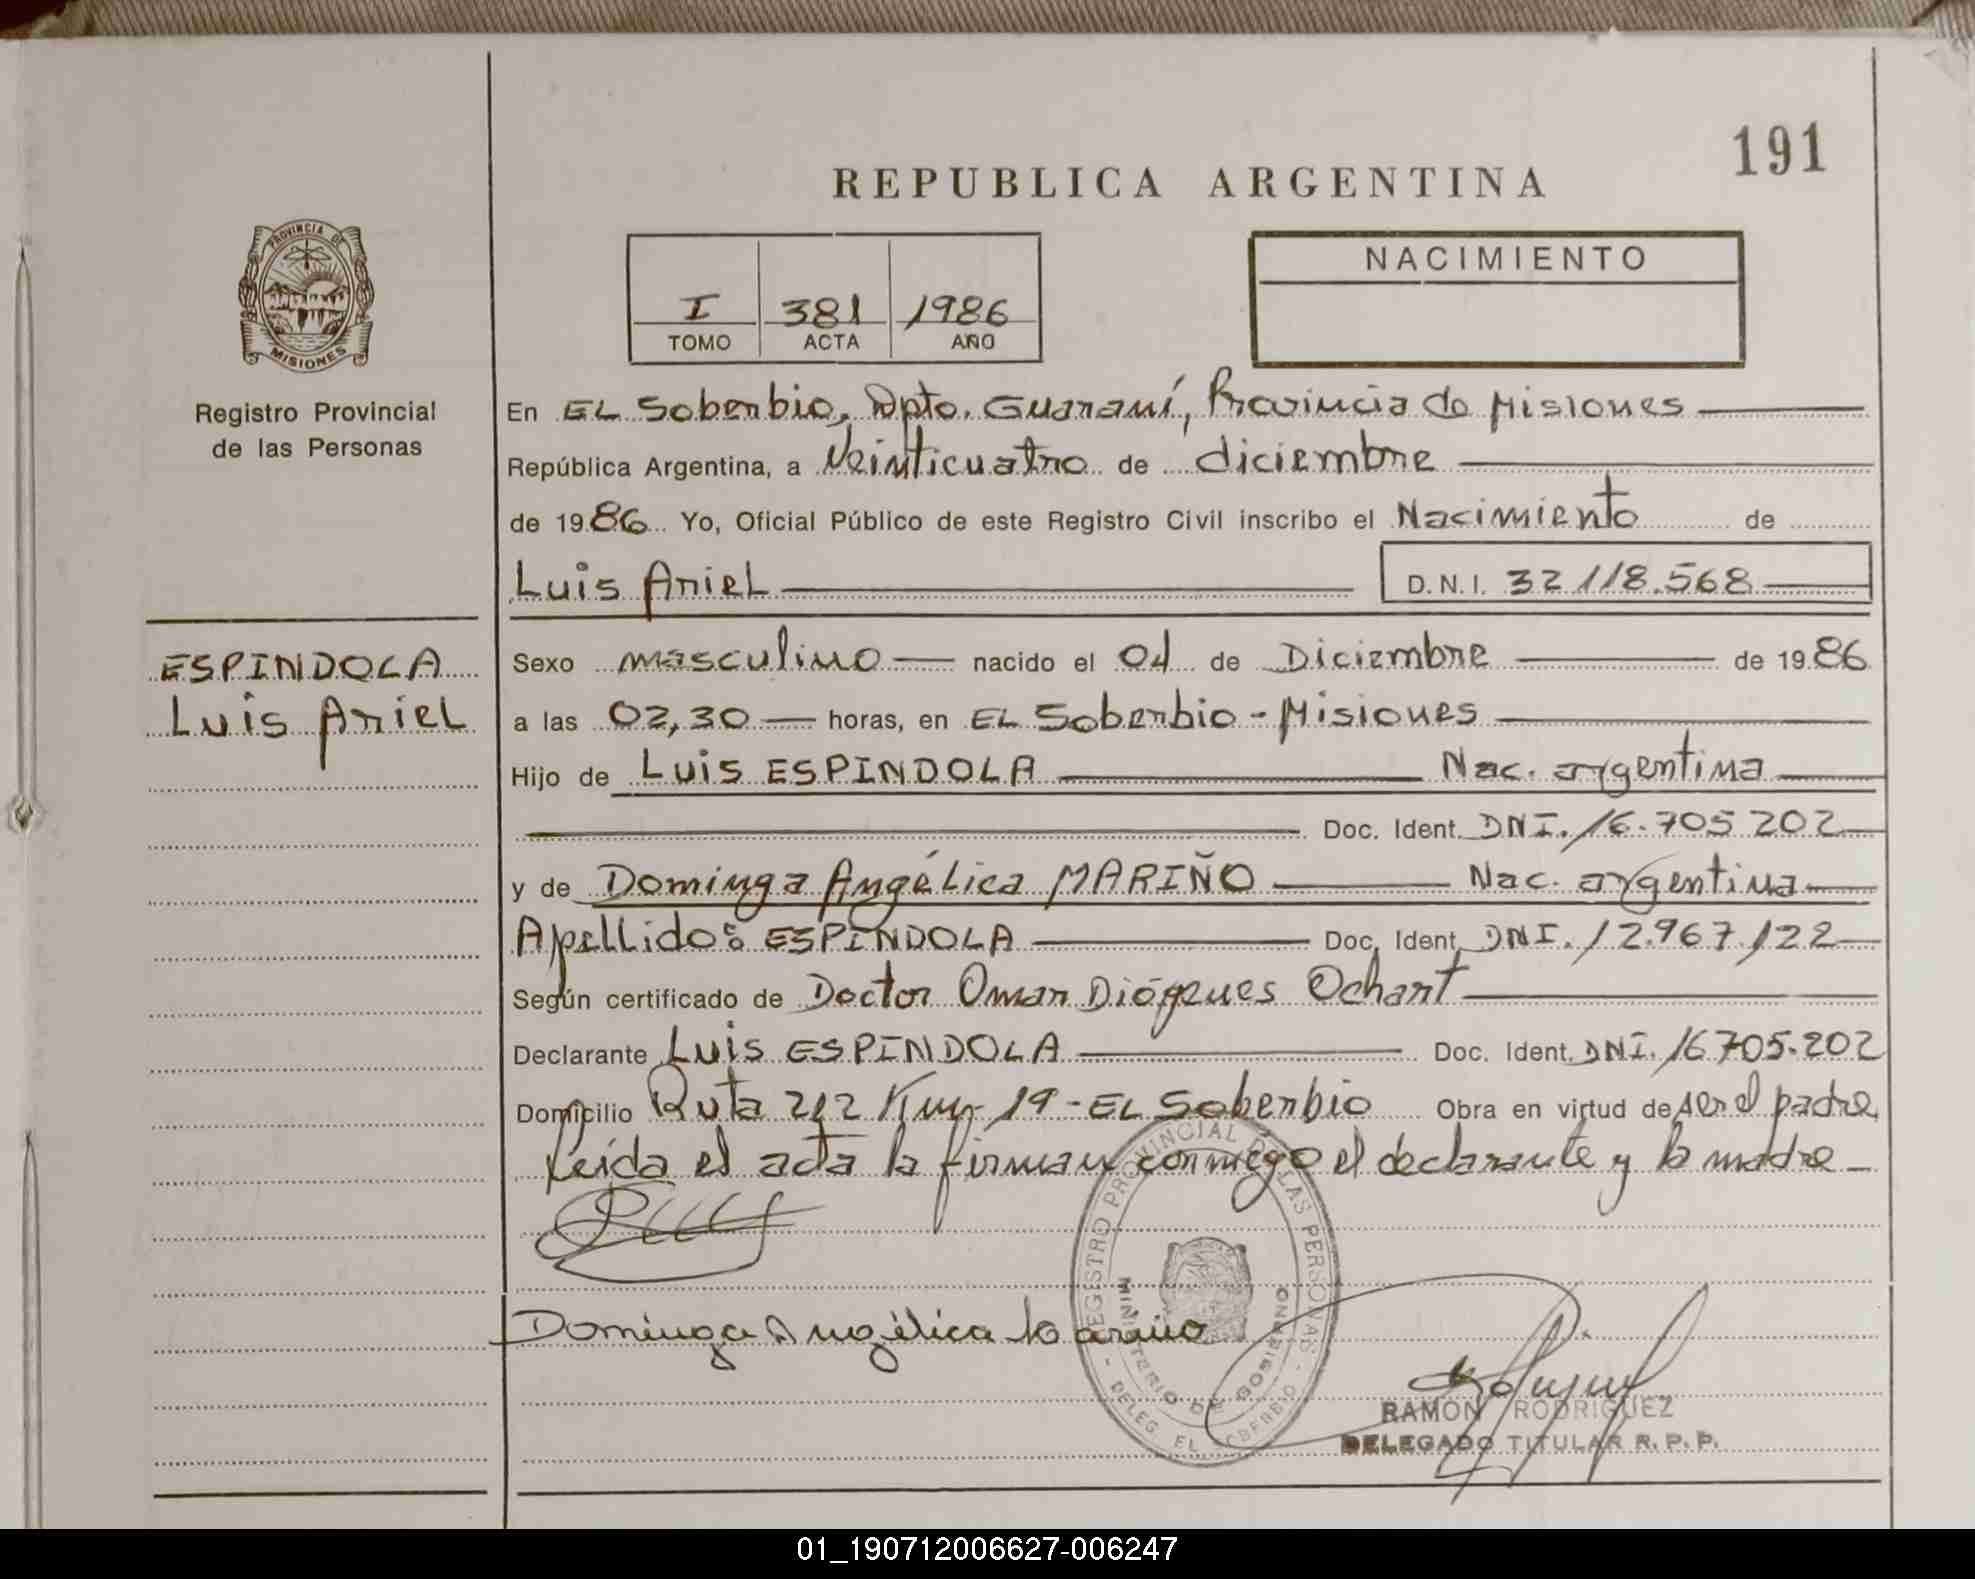 191
REPUBLICA ARGENTINA
PROVINCIA DE
MISIONES
Registro Provincial
de las Personas
I 381 1986
TOMO ACTA AÑO
NACIMIENTO
En EL Soberbio, Dpto. Guaraní, Provincia de Misiones
República Argentina, a Veinticuatro de diciembre
de 1986 Yo, Oficial Público de este Registro Civil inscribo el Nacimiento de
Luis Ariel D.N.I. 32 118.568
ESPINDOLA
Luis Ariel
Sexo masculino nacido el 04 de Diciembre de 1986
a las 02,30 horas, en EL Soberbio - Misiones
Hijo de Luis ESPINDOLA Nac. argentina
Doc. Ident. DNI. 16.705 202
y de Dominga Angélica MARIÑO Nac. argentina
Apellido: ESPINDOLA Doc. Ident. DNI. 12.967.122
Según certificado de Doctor Omar Diógenes Ochart
Declarante Luis ESPINDOLA Doc. Ident. DNI. 16705.202
Domicilio Ruta 212 Km 19 - EL Soberbio Obra en virtud de ser el padre,
Leida el acta la firman conmigo el declarante y la madre
REGISTRO PROVINCIAL DE LAS PERSONAS
MINISTERIO DE GOBIERNO
DELEG. EL SOBERBIO
Dominga Angélica Mariño
RAMON RODRIGUEZ
DELEGADO TITULAR R. P. P.
01_190712006627-006247